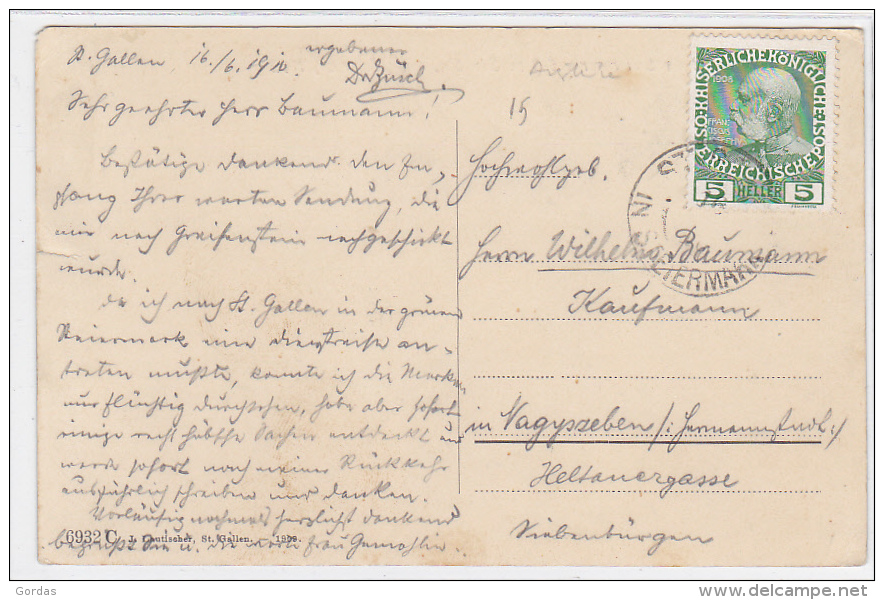 St. Gallen, 16./6. 1910
ergebener
Dr Zürch
Sehr geehrter Herr Baumann!
Bestätige dankend den Em-
pfang Ihrer werten Sendung, die
mir nach Greifenstein nachgeschickt
wurde.
Da ich nach St. Gallen in der grünen
Steiermark eine Dienstreise an-
treten mußte, konnte ich die Marken
nur flüchtig durchsehen, habe aber sofort
einige recht hübsche Sachen entdeckt und
werde sofort nach meiner Rückkehr
ausführlich schreiben und danken.
Vorläufig nochmals herzlichst dankend
begrüßt Sie u. die werte Frau Gemahlin.
6932 C J. Gutischer, St. Gallen. 1909.
15
Hochwohlgeb.
Herrn Wilhelm Baumann
Kaufmann
in Nagyszeben /: Hermannstadt :/
Heltauergasse
Siebenbürgen
KAISERLICHE KÖNIGLICHE ÖSTERREICHISCHE POST
1908
5 HELLER 5
IN STEIERMARK
Gordas
www.delcampe.net